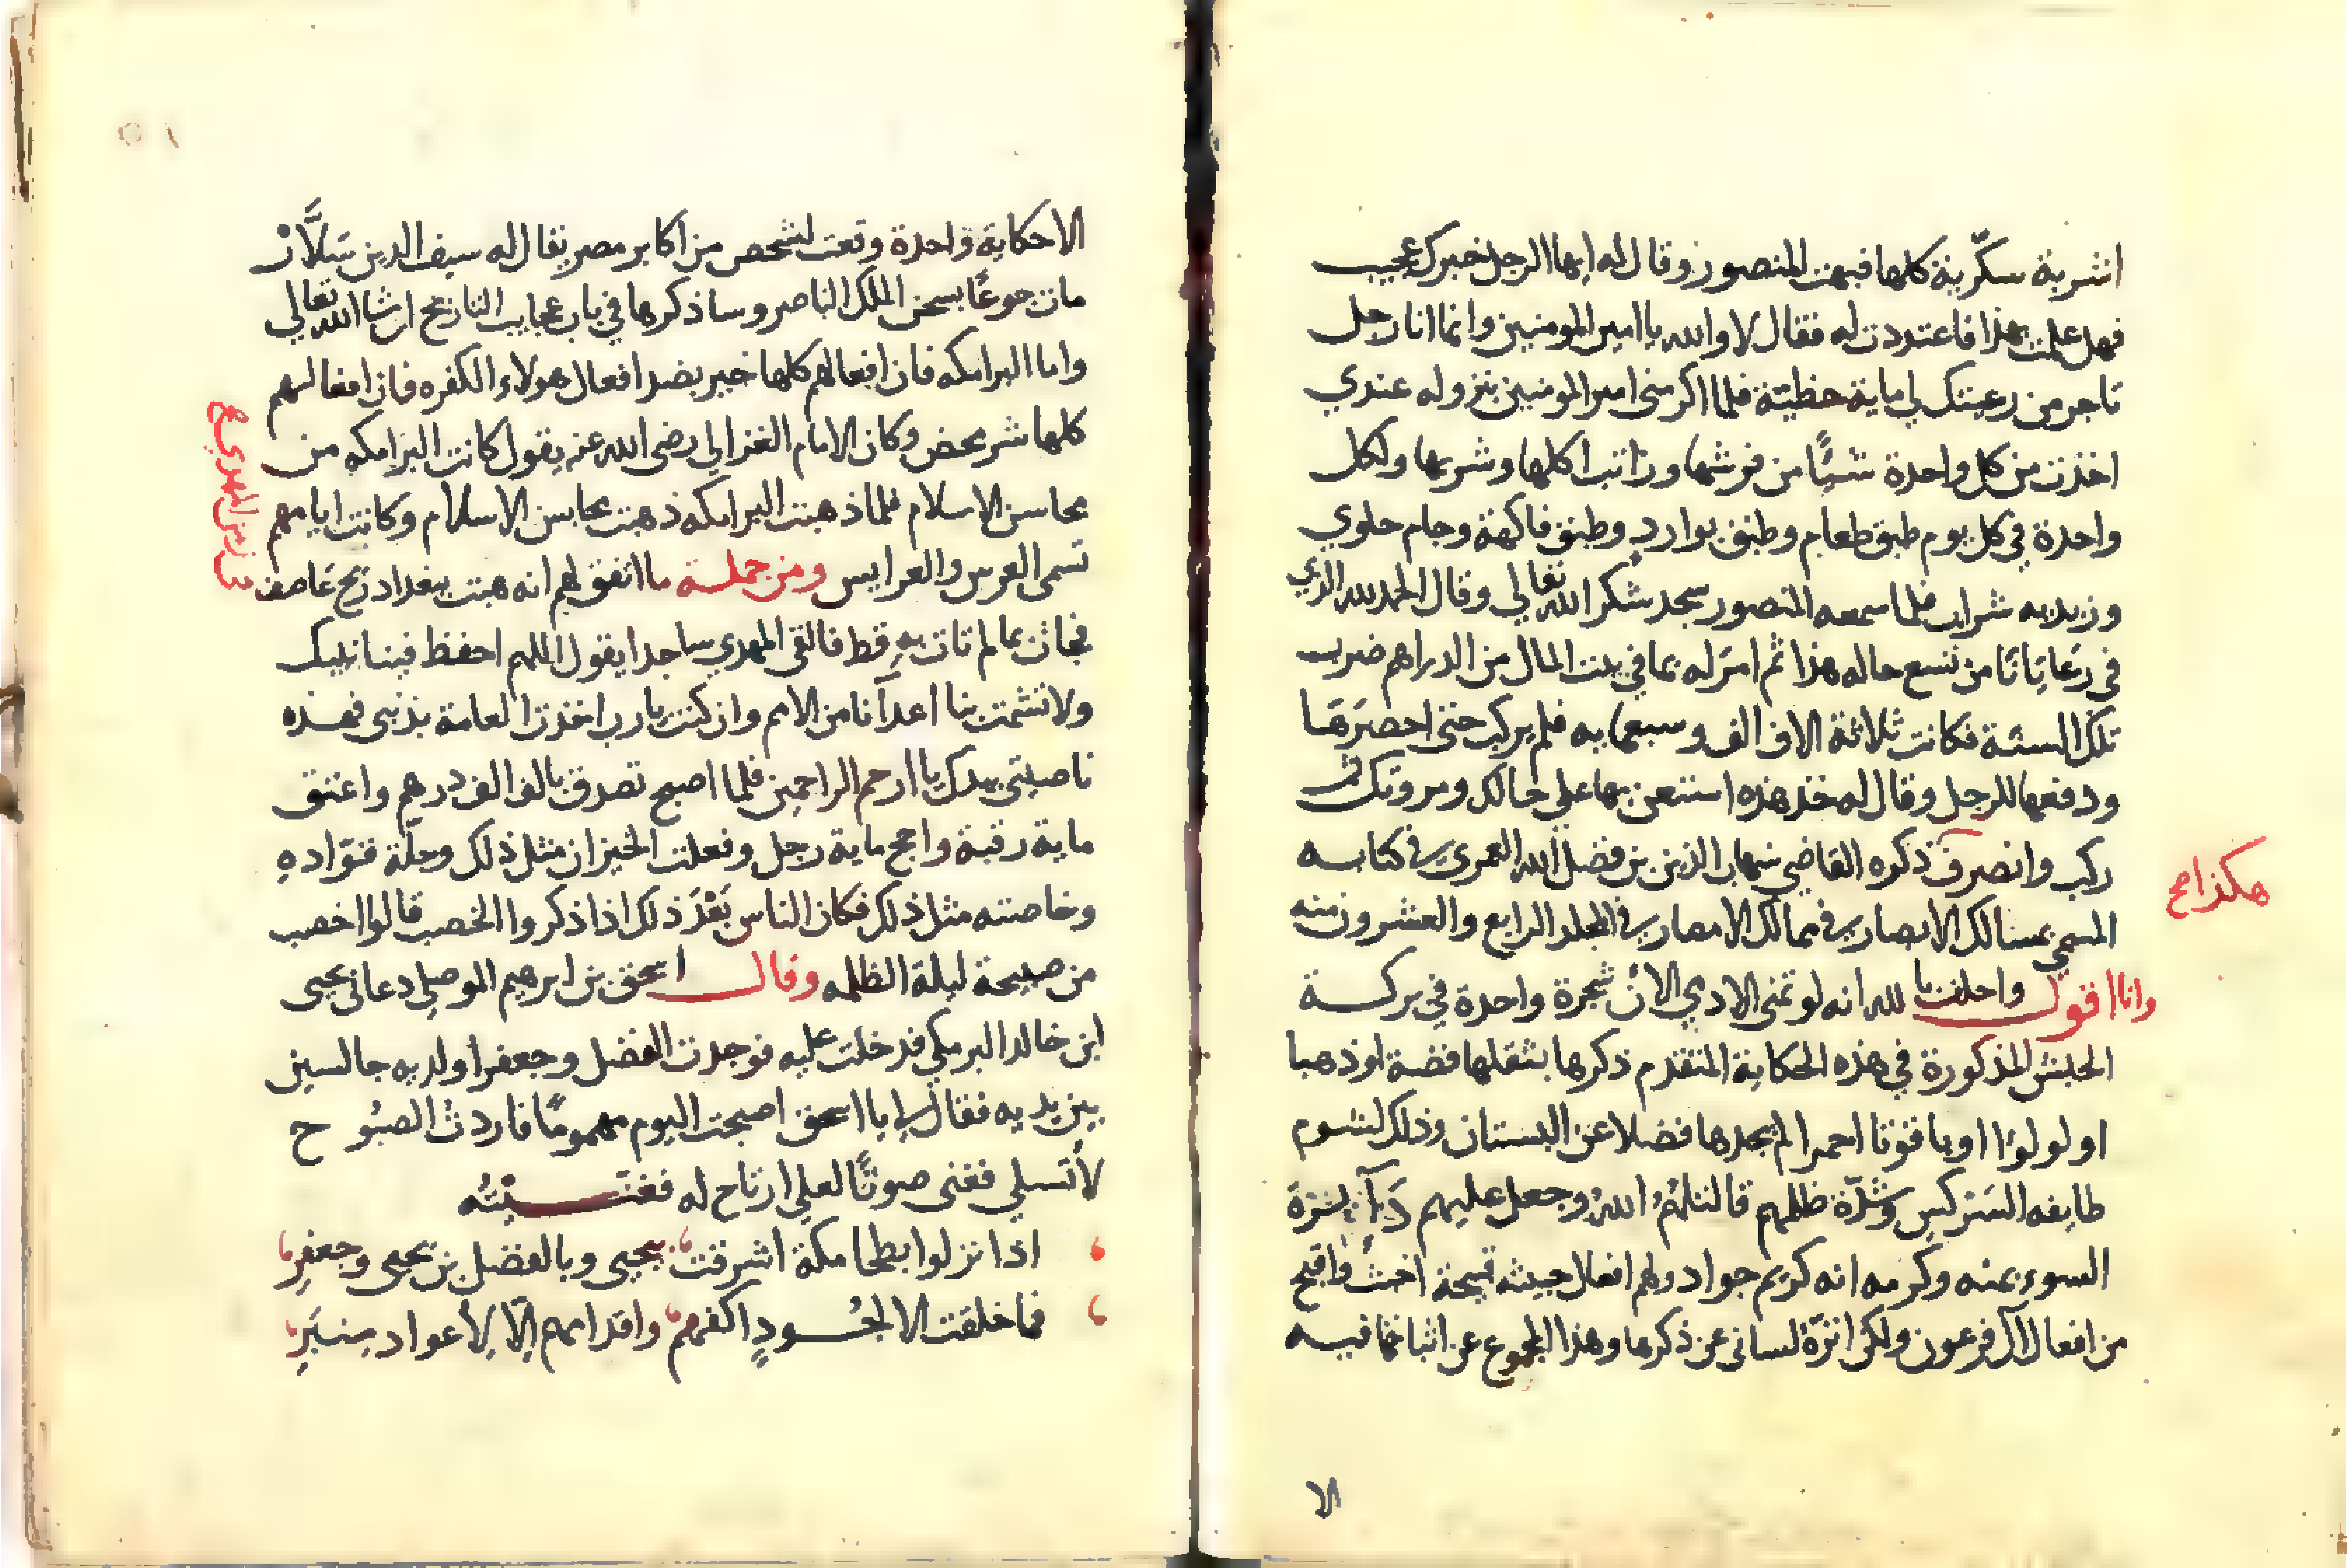 اشربة سكّرية كلها فبهت المنصور وقال له ايها الرجل خبرك عجيب
فهل علمت بهذا فاعتددت له فقال لا والله يا امير المومنين وانما انا رجل
تاجر من رعيتك لي ماية حظيّة فلما اكرمني امير المومنين بنزوله عندي
اخذت من كل واحدة شيًّا من فرشها وراتب اكلها وشربها ولكل
واحدة في كل يوم طبق طعام وطبق بوارد وطبق فاكهة وجام حلوي
وزبديه شراب فلما سمعه المنصور سجد شكرا لله تعالي وقال الحمد لله الذي
في رعايانا من تسع حاله هذا ثم امر له بما في بيت المال من الدراهم ضرب
تلك السنة فكانت ثلاثة الاف الف وسبعمايه فلم يركب حتى احضرها
ودفعها للرجل وقال له خذ هذه استعن بها على حالك ومروتك ثم
ركب وانصرف ذكره القاضي شهاب الدين بن فضل الله العمري في كتابه
هكذا صح
المسمى بمسالك الابصار في ممالك الامصار في المجلد الرابع والعشرون منه
وانا اقول واحلف بالله انه لو تمنى الادمي الان شجرة واحدة في بركة
الحبش المذكورة في هذه الحكاية المتقدم ذكرها بثقلها فضة او ذهبا
او لولوءا او ياقوتا احمرا لم يجدها فضلا عن البستان وذلك لشوم
طايفه السركس وشدّة ظلمهم قاتلهُمُ اللهُ وجعل عليهم دايرة
السوء بمنه وكرمه انه كريم جواد ولهم افعال خبيثه قبيحة اخث واقبح
من افعال ال فرعون ولكن انزّهُ لساني عن ذكرها وهذا المجموع عن اثباتها فيه
الا
الا حكاية واحدة وقعت لشخص من اكابر مصر يقال له سيف الدين سلّار
مات جوعًا بسجن الملك الناصر وساذكرها في باب عجايب التاريخ ان شا الله تعالي
واما البرامكه فان افعالهم كلها خير بضد افعال هولاء الكفره فان افعالهم
كلها شر محض وكان الامام الغزالي رضى الله عنه يقول كانت البرامكه من
محاسن الاسلام فلما ذهبت البرامكه ذهبت محاسن الاسلام وكانت ايامهم
تسمى العرس والعرايس ومن جملة ما اتفق لهم انه هبت ببغداد ريح عاصف
في زمن المهدي
فجات بما لم تات بهِ قط فالقى المهدي ساجدا يقول اللهم احفظ فينا نبيك
ولا تشمت بنا اعدآنا من الامم وان كنت يا رب اخذت العامة بذنبي فهذه
ناصيتي بيدك يا ارحم الراحمين فلما اصبح تصدق بالف الف درهم واعتق
ماية رقبة واحج ماية رجل وفعلت الخيزران مثل ذلك وجلّة قوّاده
وخاصته مثل ذلك فكان الناس بَعْدَ ذلك اذا ذكروا الخصب قالوا اخصب
من صبيحة ليلة الظلمه وقال اسحق بن ابرهيم الموصلي دعاني يحيى
ابن خالد البرمكي فدخلت عليه فوجدت الفضل وجعفرا ولديه جالسين
بين يديه فقال لي يا اسحق اصبحت اليوم مهمومًا فاردتُ الصبُوح
لأتسلي فغنى صوتًا لعلي ارتاح له فغنّيْتُه
اذا نزلوا بطحا مكة اشرقت بيحيى وبالفضل بن يحيى وجعفرِ
فما خلقت الا لجُودٍ اكفهم واقدامهم الّا لِأعواد منبَرِ